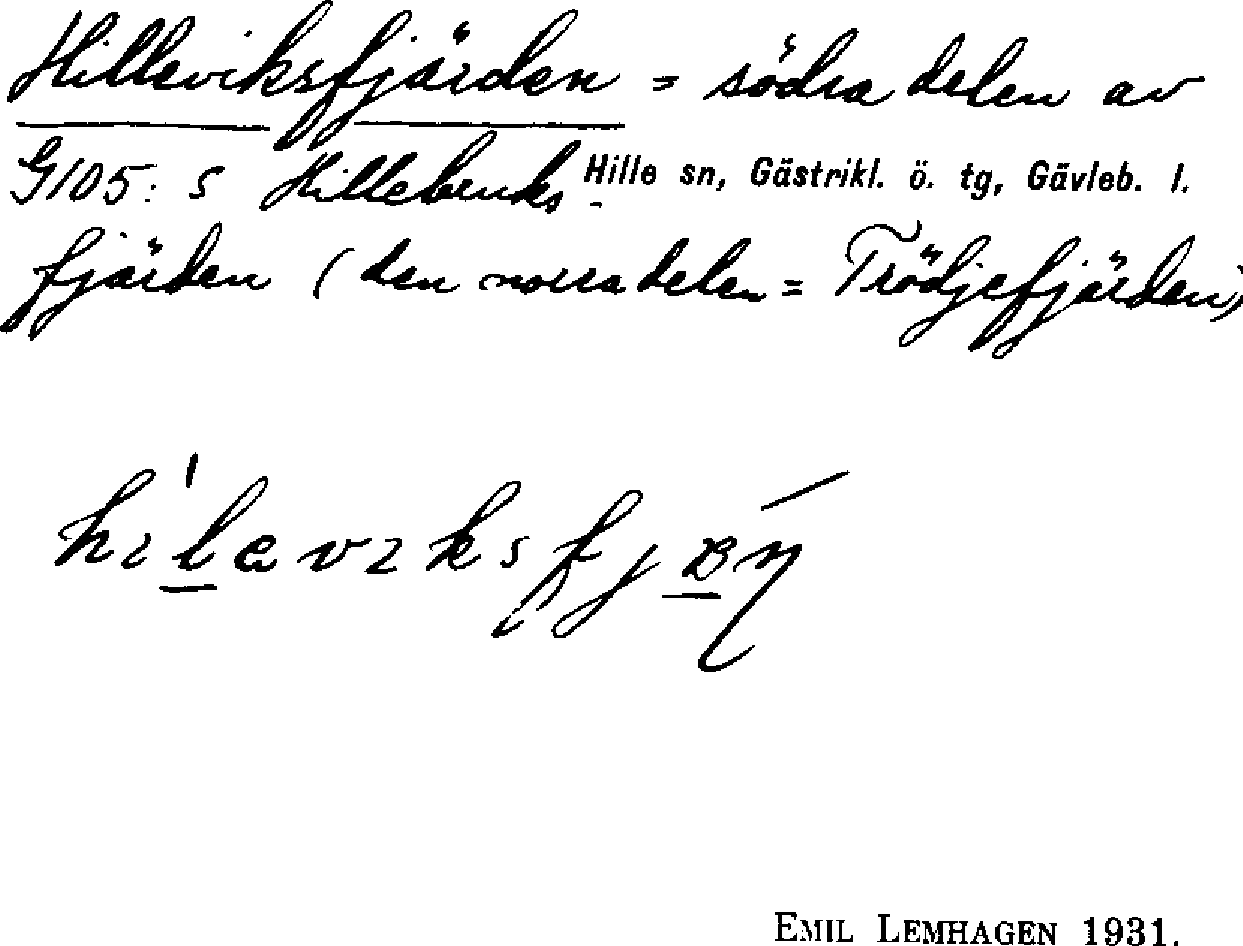 Hilleviksfjärden = södra delen av
G105: s Hillebruks-
Hille sn, Gästrikl. ö. tg, Gävleb. l.
fjärden (den norra delen = Trödjefjärden)
EMIL LEMHAGEN 1931.